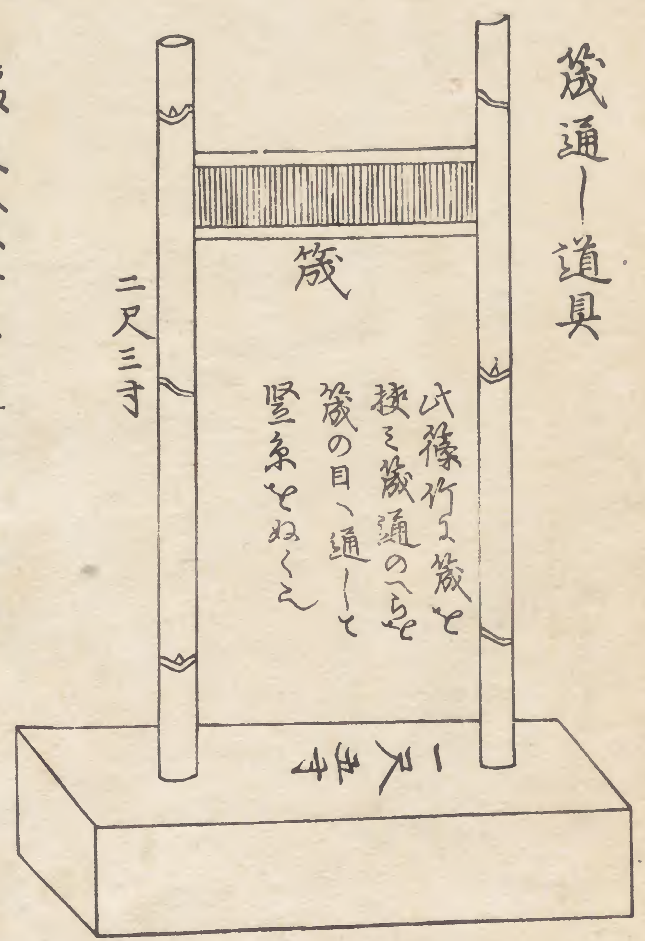 筬通し道具
筬
此篠竹に筬を
挟ミ筬通のへらを
筬の目へ通して
竪糸をぬく也
二尺三寸
一尺五寸